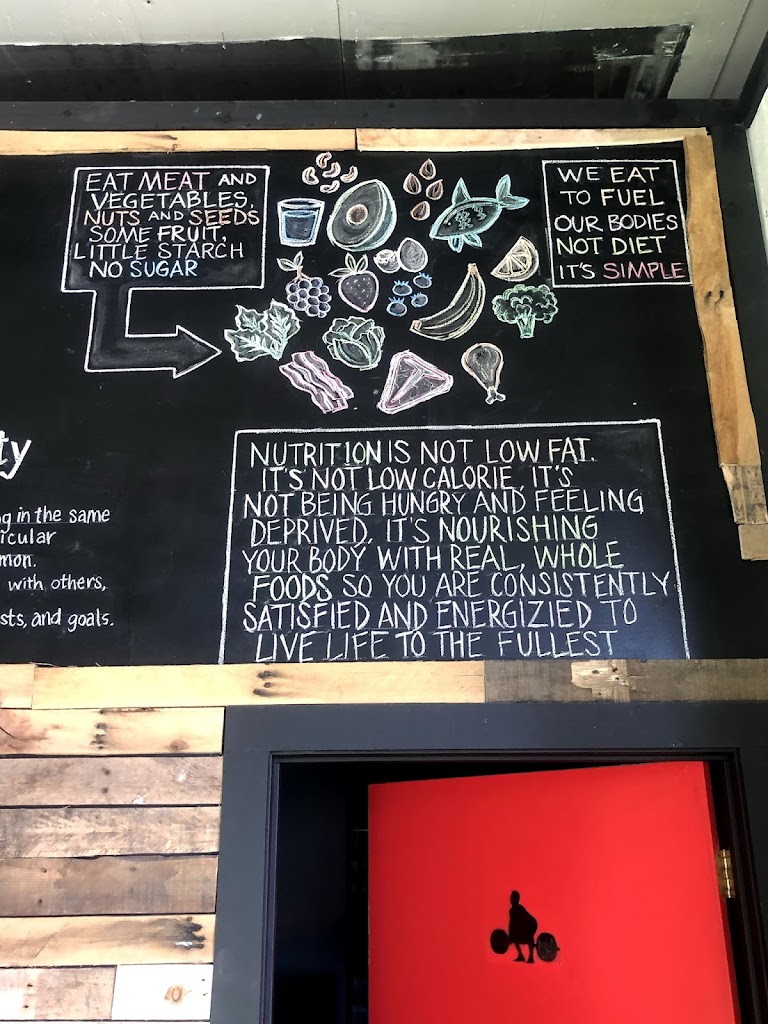 EAT MEAT AND
VEGETABLES,
NUTS AND SEEDS
SOME FRUIT,
LITTLE STARCH
NO SUGAR
WE EAT
TO FUEL
OUR BODIES
NOT DIET
IT'S SIMPLE
NUTRITION IS NOT LOW FAT.
IT'S NOT LOW CALORIE, IT'S
NOT BEING HUNGRY AND FEELING
DEPRIVED. IT'S NOURISHING
YOUR BODY WITH REAL, WHOLE
FOODS SO YOU ARE CONSISTENTLY
SATISFIED AND ENERGIZIED TO
LIVE LIFE TO THE FULLEST
ty
g in the same
icular
mon.
with others,
sts, and goals.